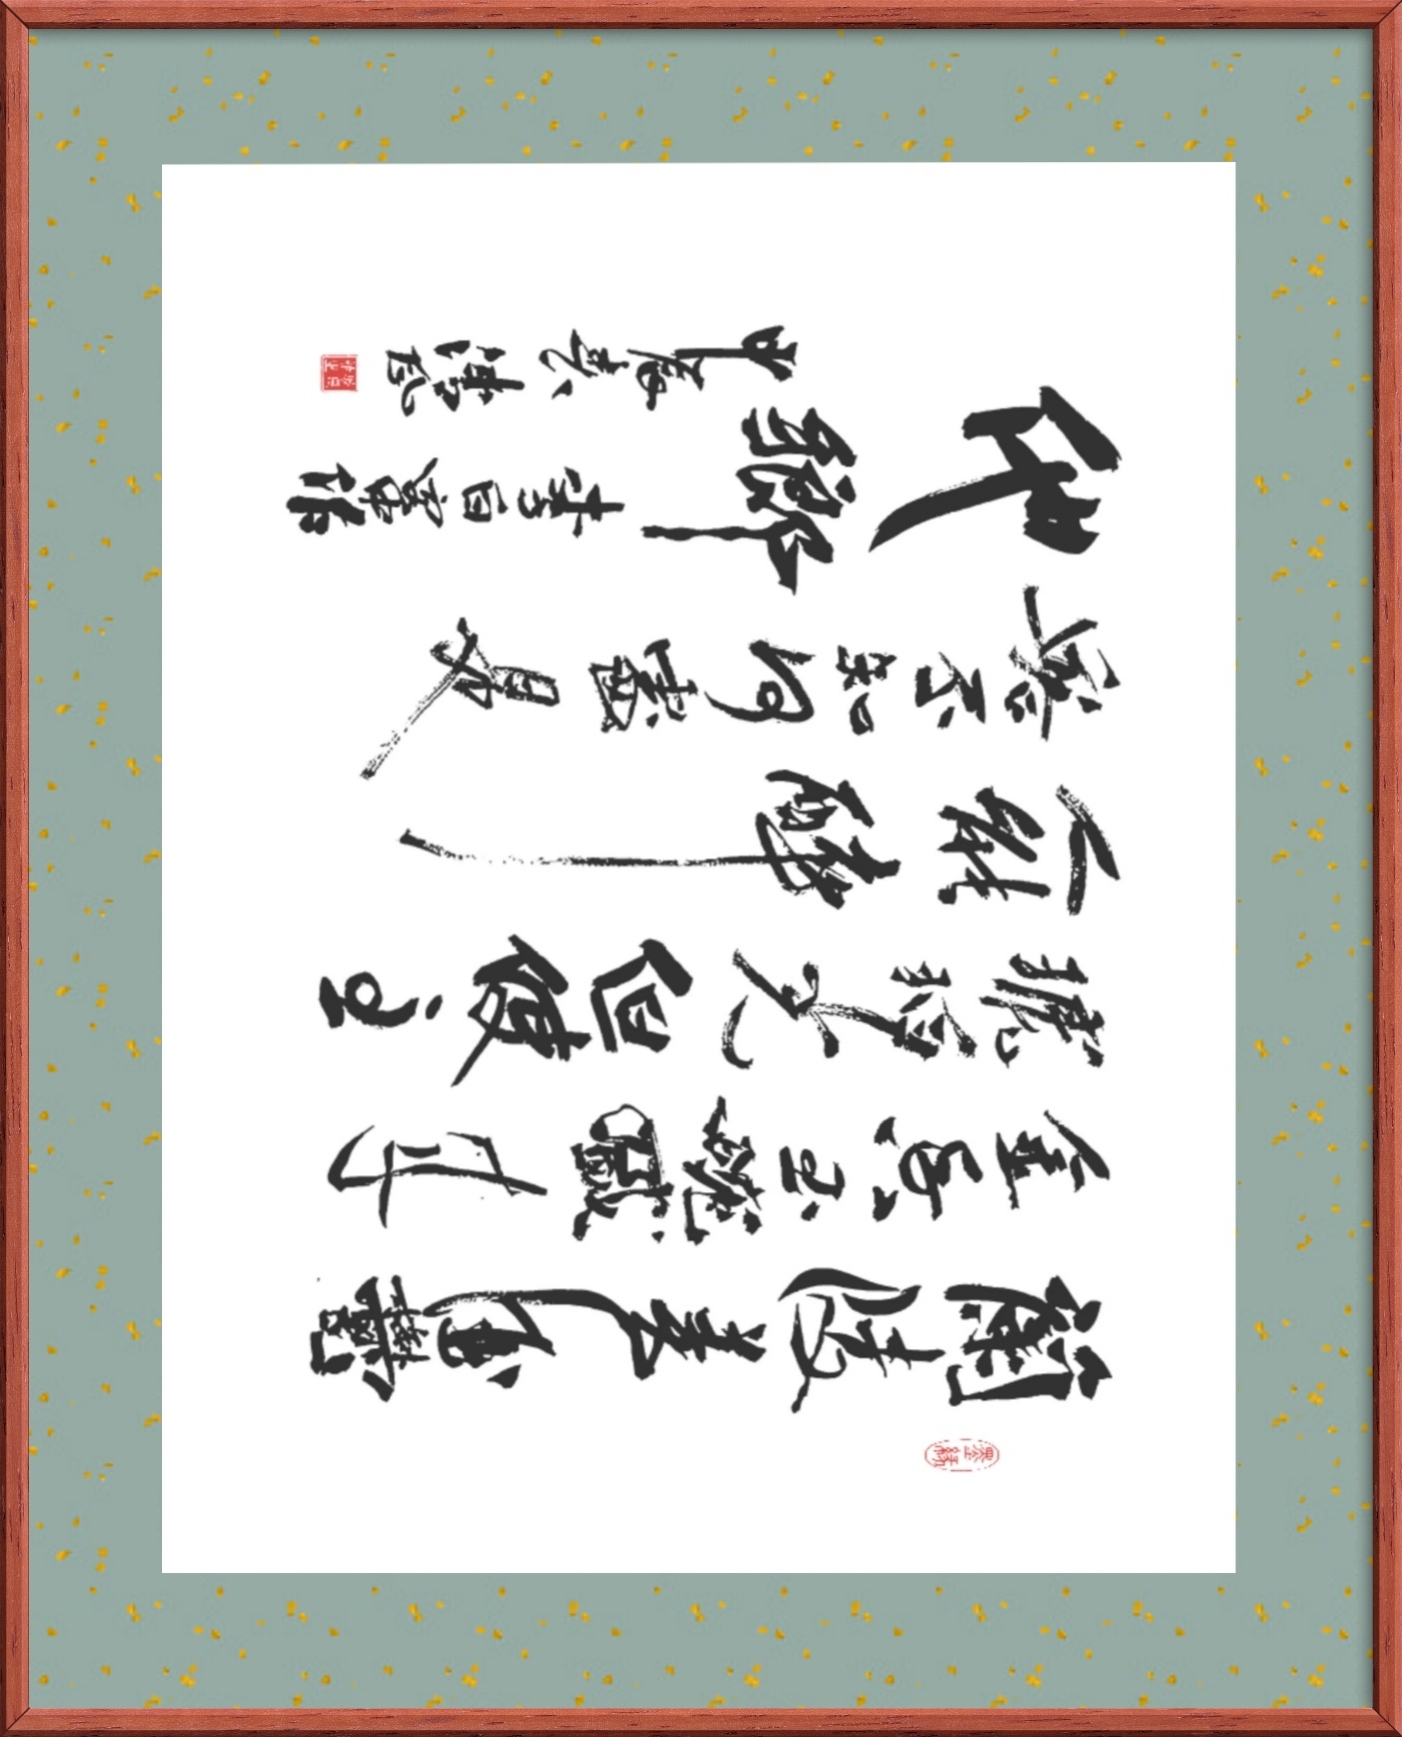 墨緣
蘭陵美酒鬱
金香玉碗盛來
琥珀光但使主
人能醉
客不知何處是
他鄉
李白客中作
甲辰